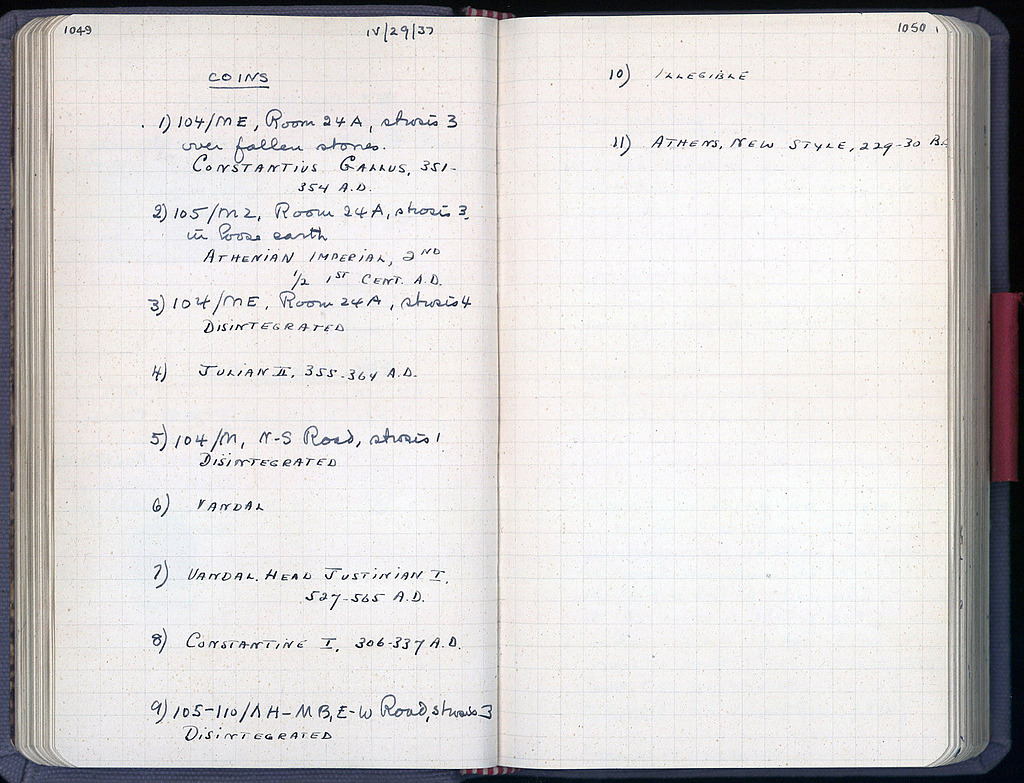 1049
IV/29/37
COINS
1) 104/ME, Room 24A, strosis 3
over fallen stones.
CONSTANTIUS GALLUS, 351-
354 A.D.
2) 105/MZ, Room 24A, strosis 3,
in loose earth
ATHENIAN IMPERIAL, 2ND
1/2 1ST CENT. A.D.
3) 104/ME, Room 24A, strosis 4
DISINTEGRATED
4) JULIAN II, 355-364 A.D.
5) 104/M, N-S Road, strosis 1
DISINTEGRATED
6) VANDAL
7) VANDAL. HEAD JUSTINIAN I,
527-565 A.D.
8) CONSTANTINE I, 306-337 A.D.
9) 105-110/ΛH-MB, E-W Road, strosis 3
DISINTEGRATED
1050
10) ILLEGIBLE
11) ATHENS, NEW STYLE, 229-30 B.C.